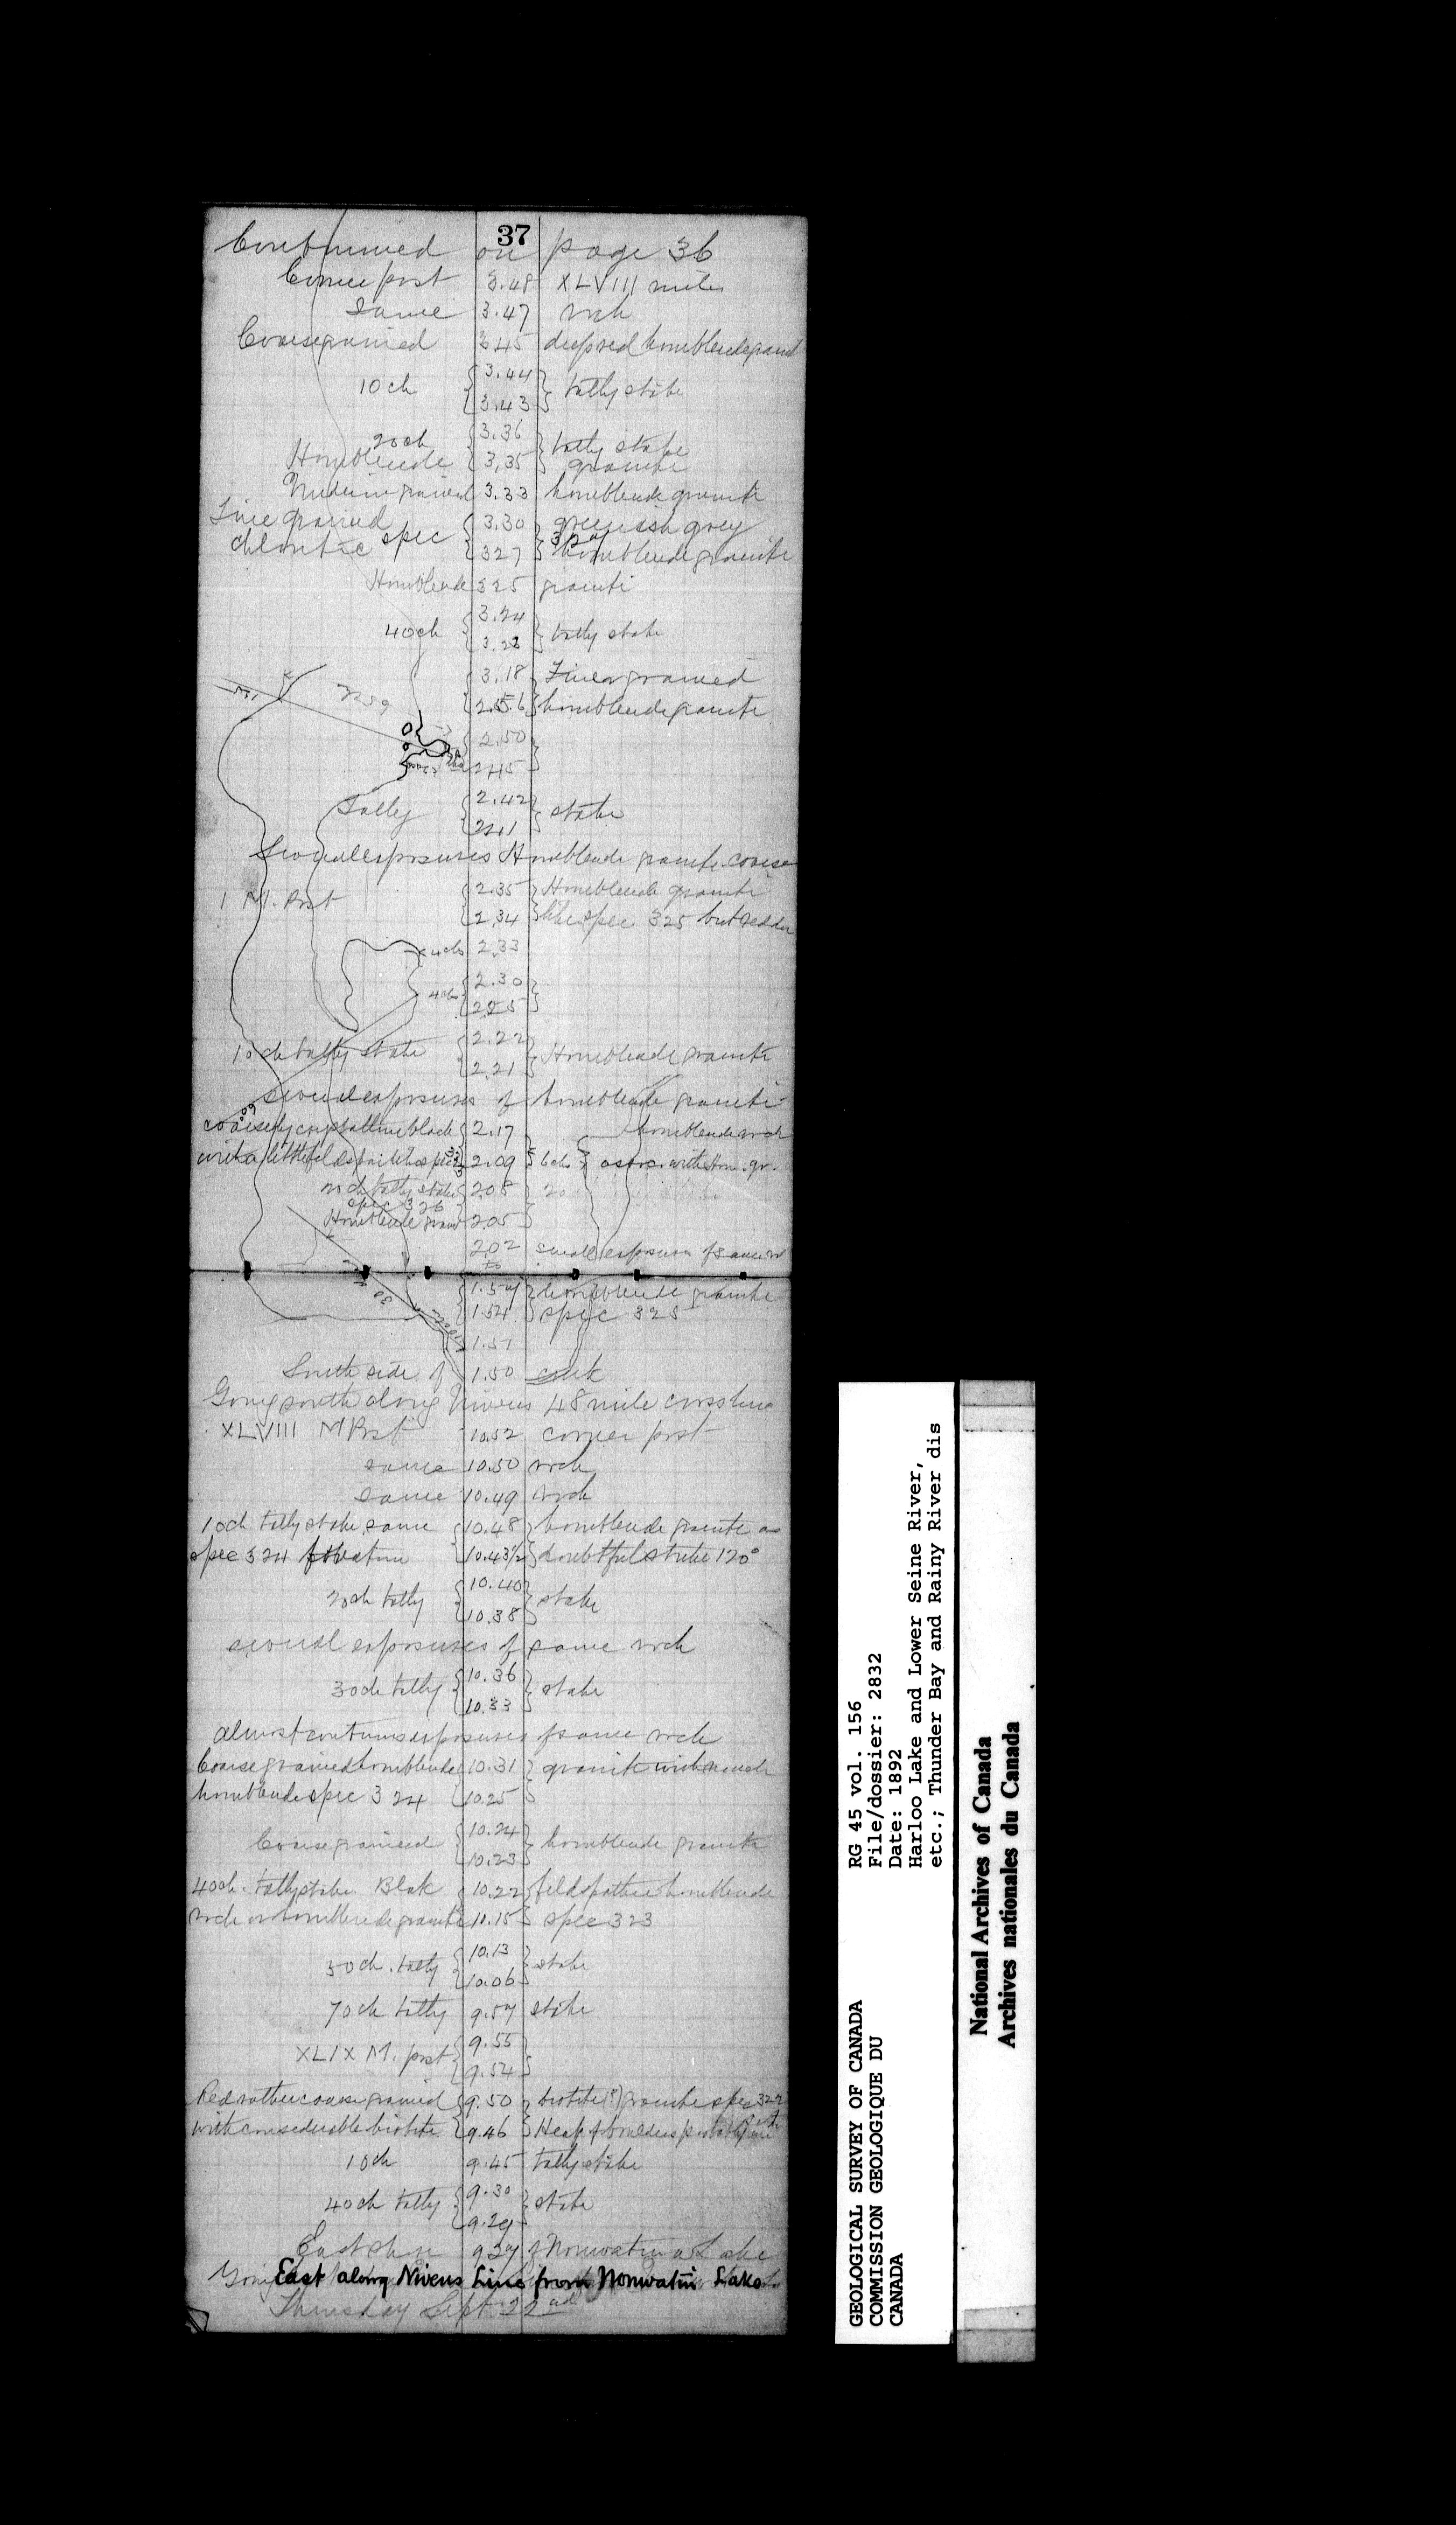 37
Continued on page 36
Corner post 3.48 XLVIII miles
Same 3.47 rock
Coarse grained 3.45 deep red hornblende granite
10 ch { 3.44 } tally stake
3.43
20 ch { 3.36 } tally stake
Hornblende 3.35 granite
Medium grained 3.33 hornblende granite
Fine grained { 3.30 } greenish grey
chloritic spec 327 hornblende granite
Hornblende 3.25 granite
3.24
40 ch { } tally stake
3.18 Finer grained
2.56 hornblende granite
2.50
2.45
Tally { 2.42 } stake
2.41
Several exposures Hornblende granite coarse
1 M. Post { 2.35 } Hornblende granite
2.34 like spec 325 but redder
4 chs 2.33
4 ch { 2.30
2.25
10 ch tally stake { 2.22 } Hornblende granite
2.21
several exposures of hornblende granite
coarsely crystalline black { 2.17 hornblende rock
with a little feldspar 2.09 6 chs } assoc. with Horn. gr.
20 ch tally stake 2.08 20
spec 326
Hornblende granite 2.05
2.02 small exposures of same
to
1.57 } hornblende granite
1.54 spec 325
1.51
South side of 1.50 creek
Going south along Nivens 48 mile cross line
XLVIII M Post 10.52 corner post
same 10.50 rock
same 10.49 rock
10 ch tally stake same { 10.48 } hornblende granite as
spec 324 foliation 10.43½ doubtful strike 120°
20 ch tally { 10.40 } stake
10.38
several exposures of same rock
30 ch tally { 10.36 } stake
10.33
almost continuous exposures of same rock
Coarse grained hornblende { 10.31 } granite with much
hornblende spec 324 10.25
Coarse grained { 10.24 } hornblende granite
10.23
40 ch. tally stake Black { 10.22 } feldspathic hornblende
rock or hornblende granite 10.15 spec 323
50 ch. tally { 10.13 } stake
10.06
70 ch tally 9.57 stake
XLIX M. post { 9.55 }
9.54
Red rather coarse grained { 9.50 } biotite (?) granite spec 322
with considerable biotite 9.46 Heap of boulders probably
10 ch 9.45 tally stake
40 ch tally { 9.30 } stake
9.29
East shore 9.27 of Nonwatin Lake
Going East along Nivens Line from Nonwatin Lake
Thursday Sept 22nd
GEOLOGICAL SURVEY OF CANADA
COMMISSION GEOLOGIQUE DU
CANADA
RG 45 vol. 156
File/dossier: 2832
Date: 1892
Harloo Lake and Lower Seine River,
etc.; Thunder Bay and Rainy River dis
National Archives of Canada
Archives nationales du Canada